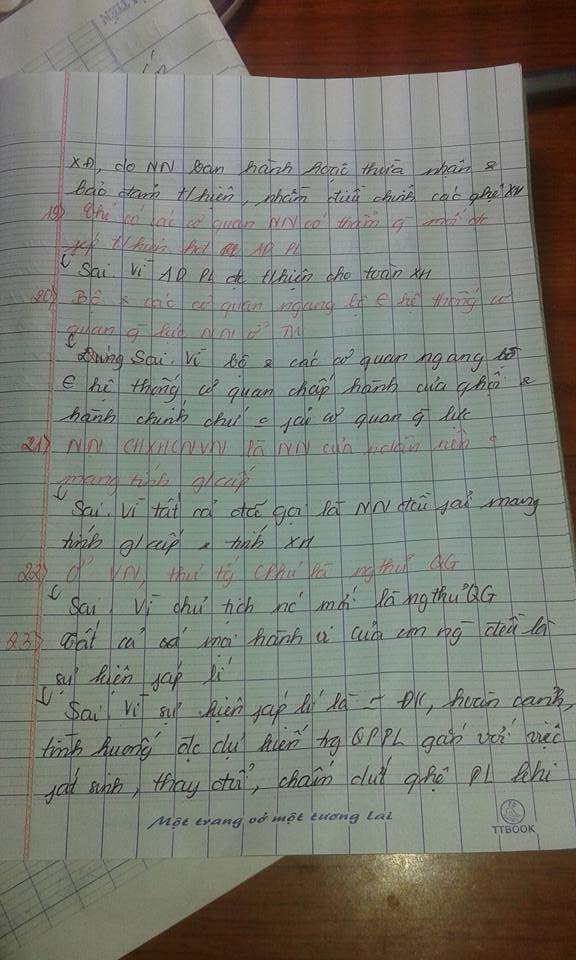 XĐ, do NN ban hành hoặc thừa nhận &
bảo đảm t/hiện, nhằm điều chỉnh các qhệ XH
19) Chỉ có các cơ quan NN có thẩm q mới đc
fép t/hiện hđ AD PL
Sai. Vì AD PL đc t/hiện cho toàn XH
20) Bộ & các cơ quan ngang bộ ∈ hệ thống cơ
quan q lực NN ở TW
Đúng Sai. Vì bộ & các cơ quan ngang bộ
∈ hệ thống cơ quan chấp hành của qhội &
hành chính chứ fải cơ quan q lực
21) NN CHXHCNVN là NN của ndân nên
mang tính g/cấp
Sai. Vì tất cả đã gọi là NN đều fải mang
tính g/cấp & tính XH
22) Ở VN, thủ tg Cphủ là ng thứ QG
Sai. Vì chủ tịch nc mới là ng thứ QG
23) Tất cả mọi hành vi của con ng đều là
sự kiện fáp lí
Sai. Vì sự kiện fáp lí là - ĐK, hoàn cảnh,
tình huống đc dự kiến trg QPPL gắn với việc
fát sinh, thay đổi, chấm dứt qhệ PL khi
Một trang vở một tương lai
TTBOOK